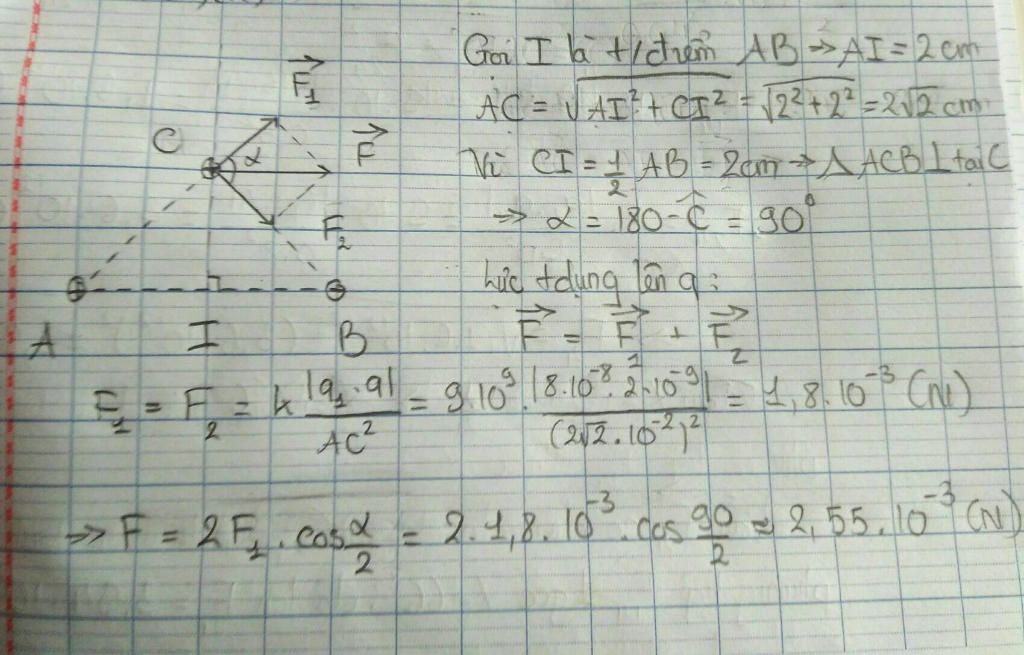 Gọi I là t/điểm AB → AI = 2cm
AC = √(AI² + CI²) = √(2² + 2²) = 2√2 cm
Vì CI = 1/2 AB = 2cm → Δ ACB ⊥ tại C
→ α = 180 - Ĉ = 90°
Lực t dụng lên q:
F⃗ = F⃗₁ + F⃗₂
F⃗₁
C
α
F⃗
F₂
A I B
F₁ = F₂ = k |q₁.q|/AC² = 9.10⁹. |8.10⁻⁸. 2.10⁻⁹|/(2√2.10⁻²)² = 1,8.10⁻³ (N)
→ F = 2F₁. cos α/2 = 2.1,8.10⁻³. cos 90/2 ≈ 2,55.10⁻³ (N)